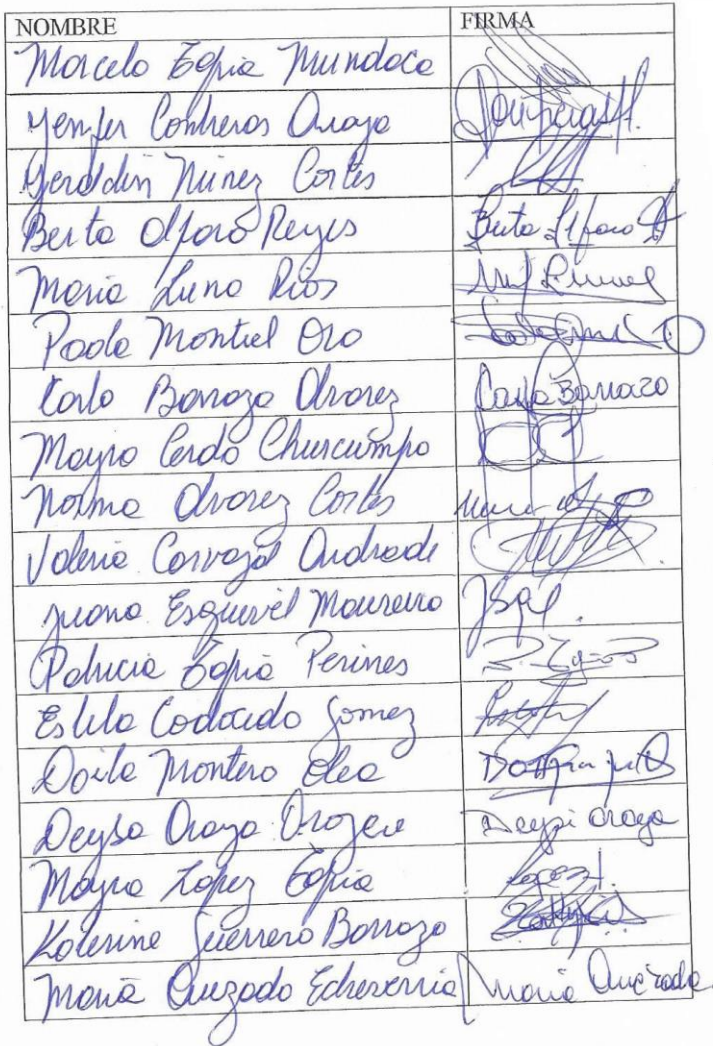 NOMBRE FIRMA
Marcelo Tapia Mundaca
Yenfer Contreras Araya
Geraldin Núnez Cortés
Berta Alfaro Reyes Berta Alfaro
Maria Luna Rios
Paola Montiel Oro
Karla Barraza Alvarez Carla Barraza
Mayra Cerda Churcumpa
Norma Alvarez Cortés
Valeria Carvajal Andrade
Juana Esquivel Maureira
Patricia Tapia Perines
Estela Codocedo Gomez
Montero Olea
Deysa Araya Deysi Araya
Mayra Lopez Tapia
Katerine Guerrero Barraza
Maria Quezada Echeverria Maria Quezada